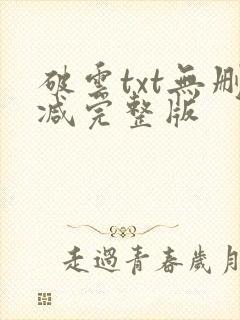 破雲txt無刪
减完整版
走過青春歲月